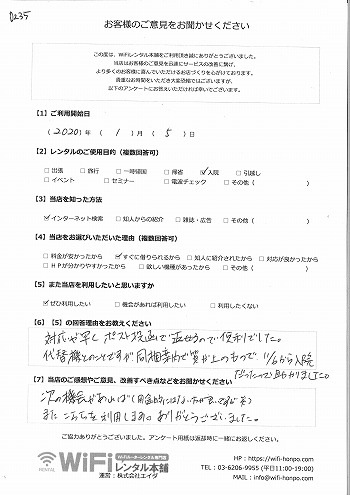 0235
お客様のご意見をお聞かせください
この度は、WiFiレンタル本舗をご利用頂き誠にありがとうございました。
当店はお客様のご意見を迅速にサービスの改善に繋げ、
より多くのお客様に喜んでいただけるお店づくりを心がけております。
貴重なお時間をいただき大変恐縮ではございますが、
以下のアンケートにお答えいただければ幸いでございます。
【1】ご利用開始日
(2020)年(1)月(5)日
【2】レンタルのご使用目的（複数回答可）
□出張 □旅行 □一時帰国 □帰省 ☑入院 □引越し
□イベント □セミナー □電波チェック □その他（ ）
【3】当店を知った方法
☑インターネット検索 □知人からの紹介 □雑誌・広告 □その他（ ）
【4】当店をお選びいただいた理由（複数回答可）
□料金が安かったから ☑すぐに借りられるから □知人に紹介されたから □対応が良かったから
□ＨＰが分かりやすかったから □欲しい機種があったから □その他（ ）
【5】また当店を利用したいと思いますか
☑ぜひ利用したい □機会があれば利用したい □利用したくない
【6】【5】の回答理由をお教えください
対応が早く ポスト投函で返せるので便利でした。
代替機とのことですが同価格内で質が上のもので 1/6から入院
だったので助かりました。
【7】当店のご感想やご意見、改善すべき点などをお聞かせください
次の機会があれば
また こちらを利用します。ありがとうございました。
ご協力ありがとうございました。アンケート用紙は返却時に一緒にお送りください。
WiFiルーターレンタル専門店
RENTAL WiFi レンタル本舗
運営：株式会社エイダ
HP：https://wifi-honpo.com
TEL：03-6206-9955 (平日11:00-19:00)
MAIL：info@wifi-honpo.com